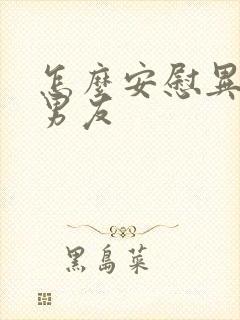 怎麼安慰異
男友
黑島菜